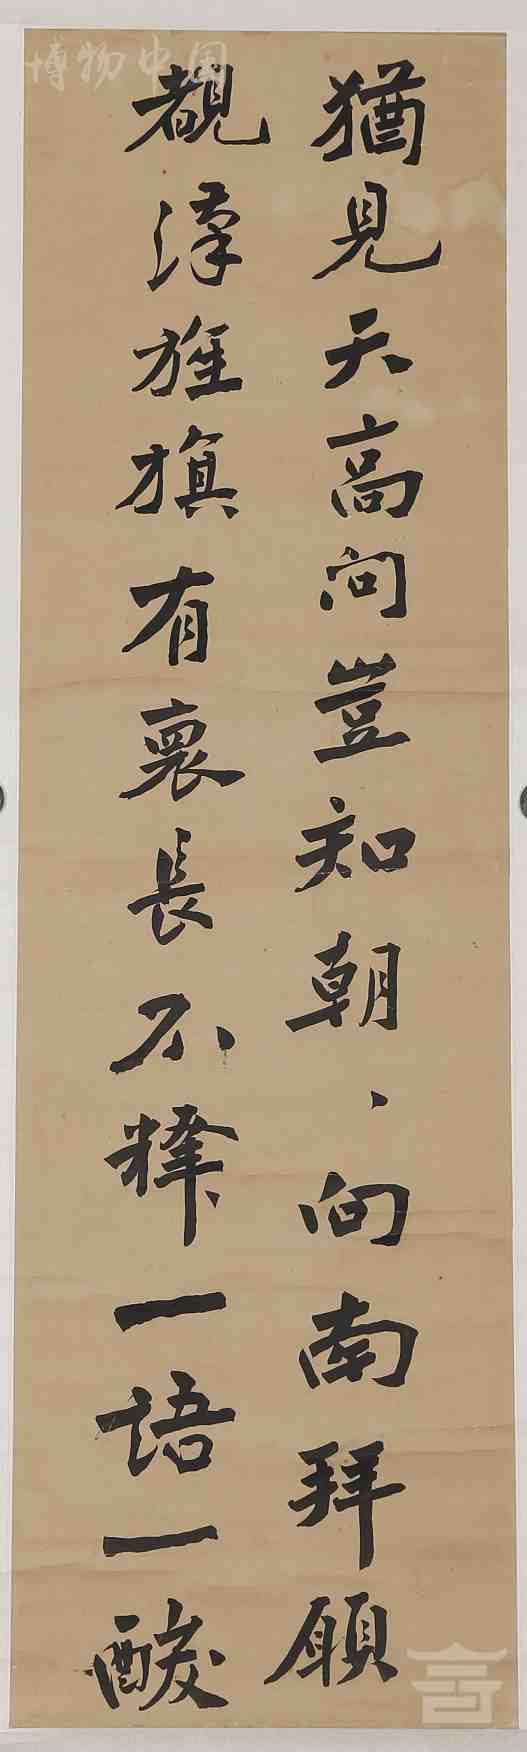 猶見天高向豈知朝、向南拜願
覩漢旌旗有裏長不釋一語一酸
博物中国